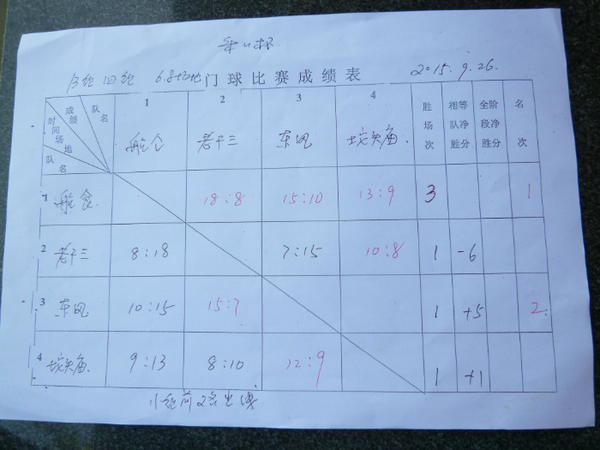 杯
组 旧组 6号场地 门球比赛成绩表 2015.9.26.
队名 成绩 时间 场地 队名
1 2 3 4
老干三 东风 坟头庙
胜场次 相等队净胜分 全阶段净胜分 名次
1 18:8 15:10 13:9 3 1
2 老干三 8:18 7:15 10:8 1 -6
3 东风 10:15 15:7 1 +5 2.
4 坟头庙 9:13 8:10 12:9 1 +1
小组前2名出线